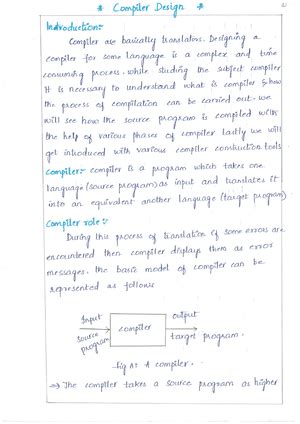 * Compiler Design *
Introduction:-
Compiler are basically translators. Designing a
compiler for some language is a complex and time
consuming process. while studing the subject compiler
it is necessary to understand what is compiler & how
the process of compilation can be carried out. we
will see how the source program is compiled with
the help of various phases of compiler lastly we will
get introduced with various compiler construction tools
Compiler:- compiler is a program which takes one
language (source program) as input and translates it
into an equivalent another language (target program)
Compiler role:-
During this process of translation of some errors are
encountered then compiler displays them as error
messages. the basic model of compiler can be
represented as follows
Input
source program
compiler
output
target program.
fig A: A compiler.
⇒ The compiler takes a source program as higher